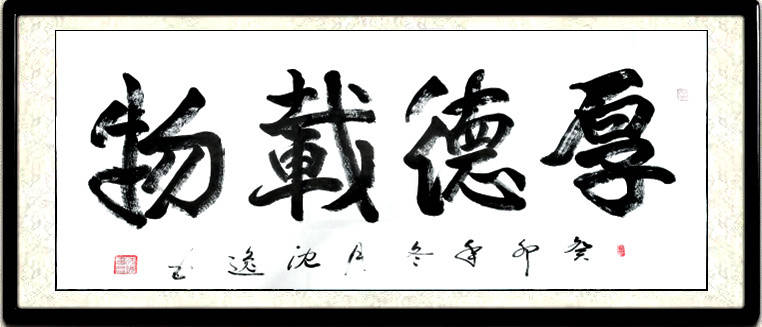 厚德載物
癸卯年冬月沈逸書